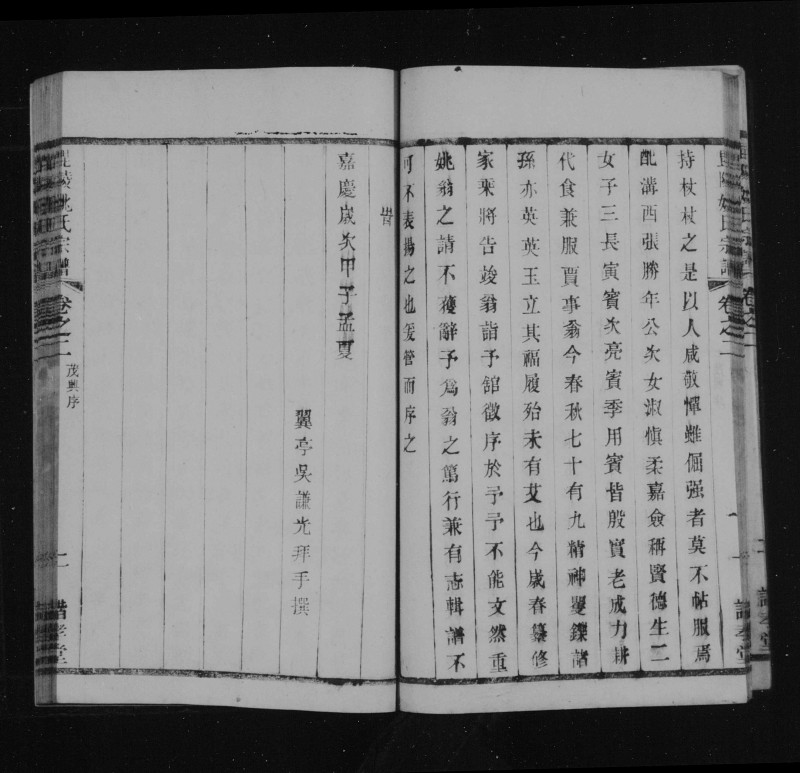 持杖杖之是以人咸敬憚雖倔强者莫不帖服焉
配溝西張勝年公次女淑慎柔嘉僉稱賢德生二
女子三長寅賓次亮賓季用賓皆殷實老成力耕
代食兼服賈事翁今春秋七十有九精神矍鑠諸
孫亦英英玉立其福履殆未有艾也今歲春纂修
家乘將告竣翁詣予舘徵序於予予不能文然重
姚翁之請不獲辭予為翁之篤行兼有志輯譜不
可不表揚之也爰管而序之
旹
嘉慶歲次甲子孟夏
翼亭吳謙光拜手撰
毘陵姚氏宗譜
卷之二
茂興序
二
毘陵姚氏宗譜
卷之二
一